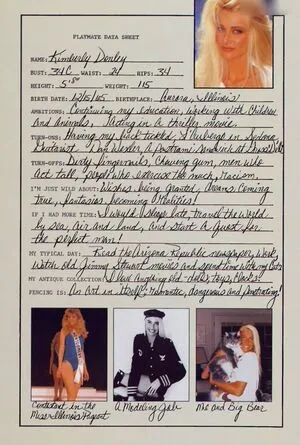 PLAYMATE DATA SHEET
NAME: Kimberly Donley
BUST: 34C WAIST: 24 HIPS: 34
HEIGHT: 5'8" WEIGHT: 115
BIRTH DATE: 12/5/65 BIRTHPLACE: Aurora, Illinois
AMBITIONS: Continuing my education, working with Children
and Animals. Acting in a thriller movie.
TURN-ONS: Having my back tickled, L'Auberge in Sedona,
Guitarist Dan Wexler, a Pastrami Sandwich at
TURN-OFFS: Dirty fingernails, Chewing Gum, men who
Act tall, people who exercise too much, Racism.
I'M JUST WILD ABOUT: Wishes being granted, dreams Coming
true, fantasies becoming Realities!
IF I HAD MORE TIME: I would sleep late, travel the world
by sea, air and land, and start a Quest for
the perfect man!
MY TYPICAL DAY: Read the Arizona Republic newspaper, work,
watch old Jimmy Stewart movies and spend time with my Cats
MY ANTIQUE COLLECTION: I love Anything old - dolls, toys, Clocks!
FENCING IS: An Art in Itself - Romantic, dangerous and Penetrating!
Contestant in the
Miss Illinois Pageant
A Modeling Job
Me and Big Bear